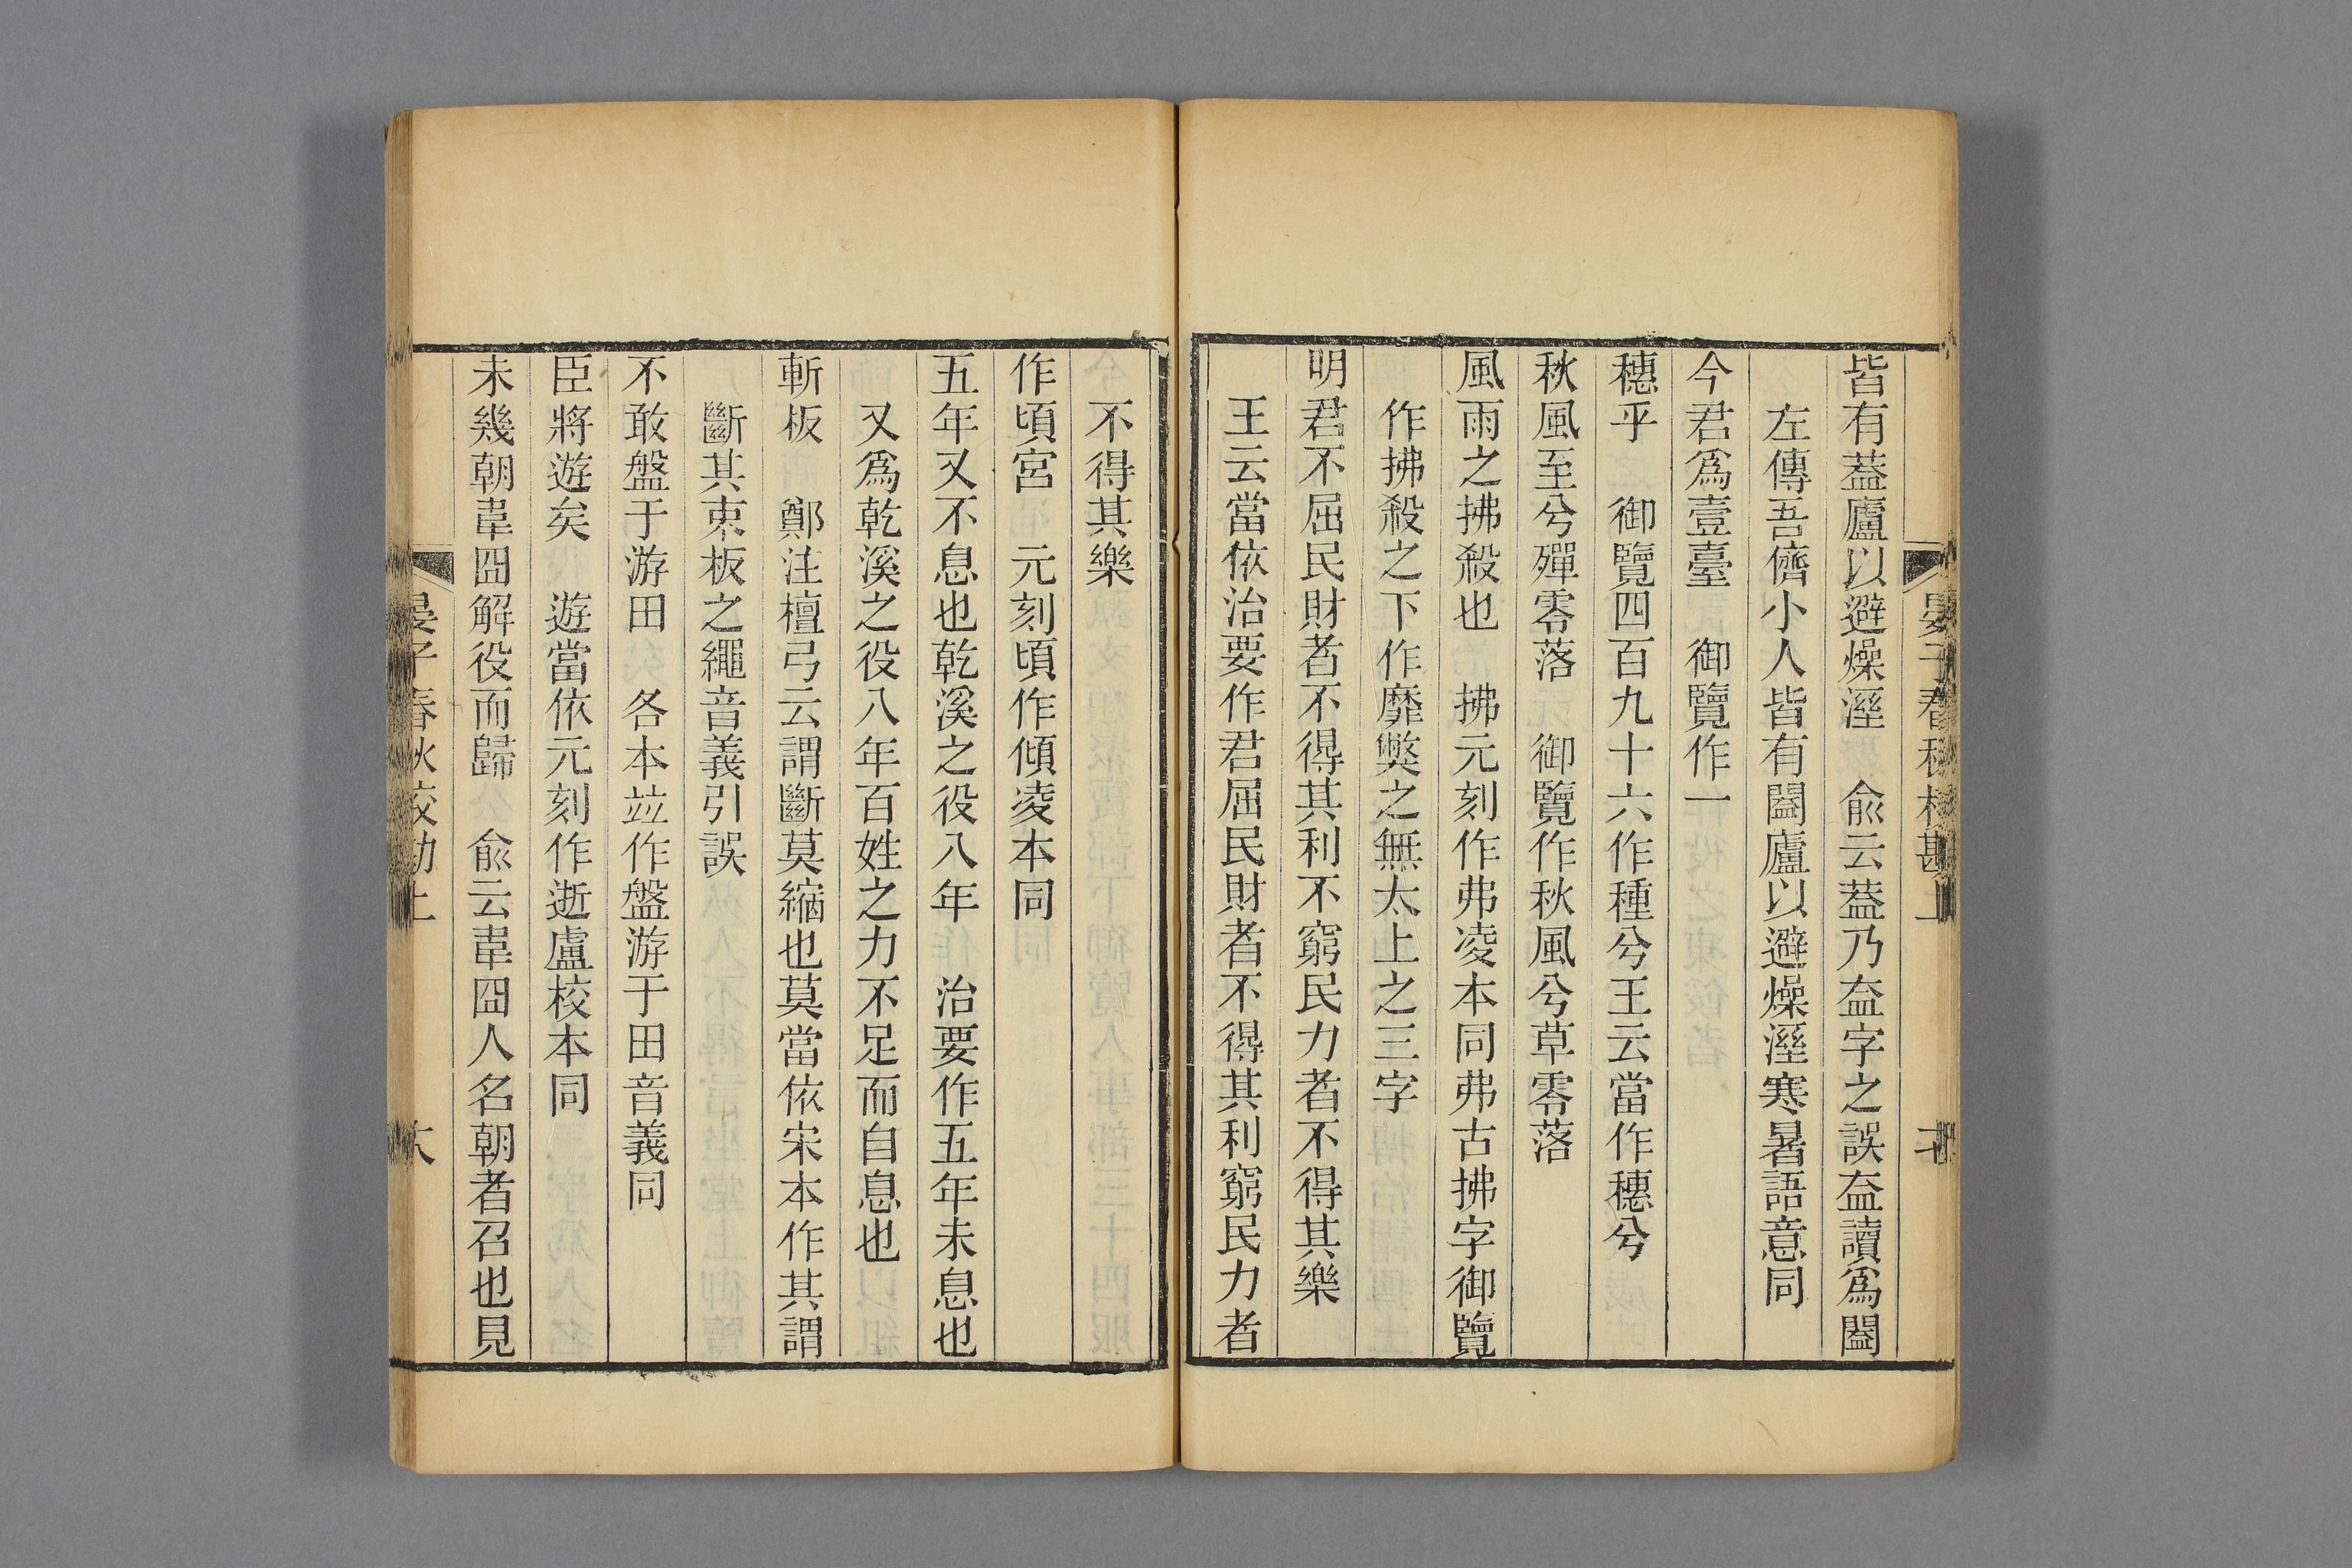 皆有蓋廬以避燥溼　俞云蓋乃盍字之誤盍讀爲闔
左傳吾儕小人皆有闔廬以避燥溼寒暑語意同
今君爲壹臺　御覽作一
穗乎　御覽四百九十六作種兮王云當作穗兮
秋風至兮殫零落　御覽作秋風兮草零落
風雨之拂殺也　拂元刻作弗凌本同弗古拂字御覽
作拂殺之下作靡獘之無太上之三字
明君不屈民財者不得其利不窮民力者不得其樂
王云當依治要作君屈民財者不得其利窮民力者
不得其樂
作頃宮　元刻頃作傾凌本同
五年又不息也乾溪之役八年　治要作五年未息也
又爲乾溪之役八年百姓之力不足而自息也
斬板　鄭注檀弓云謂斷莫縮也莫當依宋本作其謂
斷其束板之繩音義引誤
不敢盤于游田　各本竝作盤游于田音義同
臣將遊矣　遊當依元刻作逝盧校本同
未幾朝韋囧解役而歸　俞云韋囧人名朝者召也見
晏子春秋校勘上